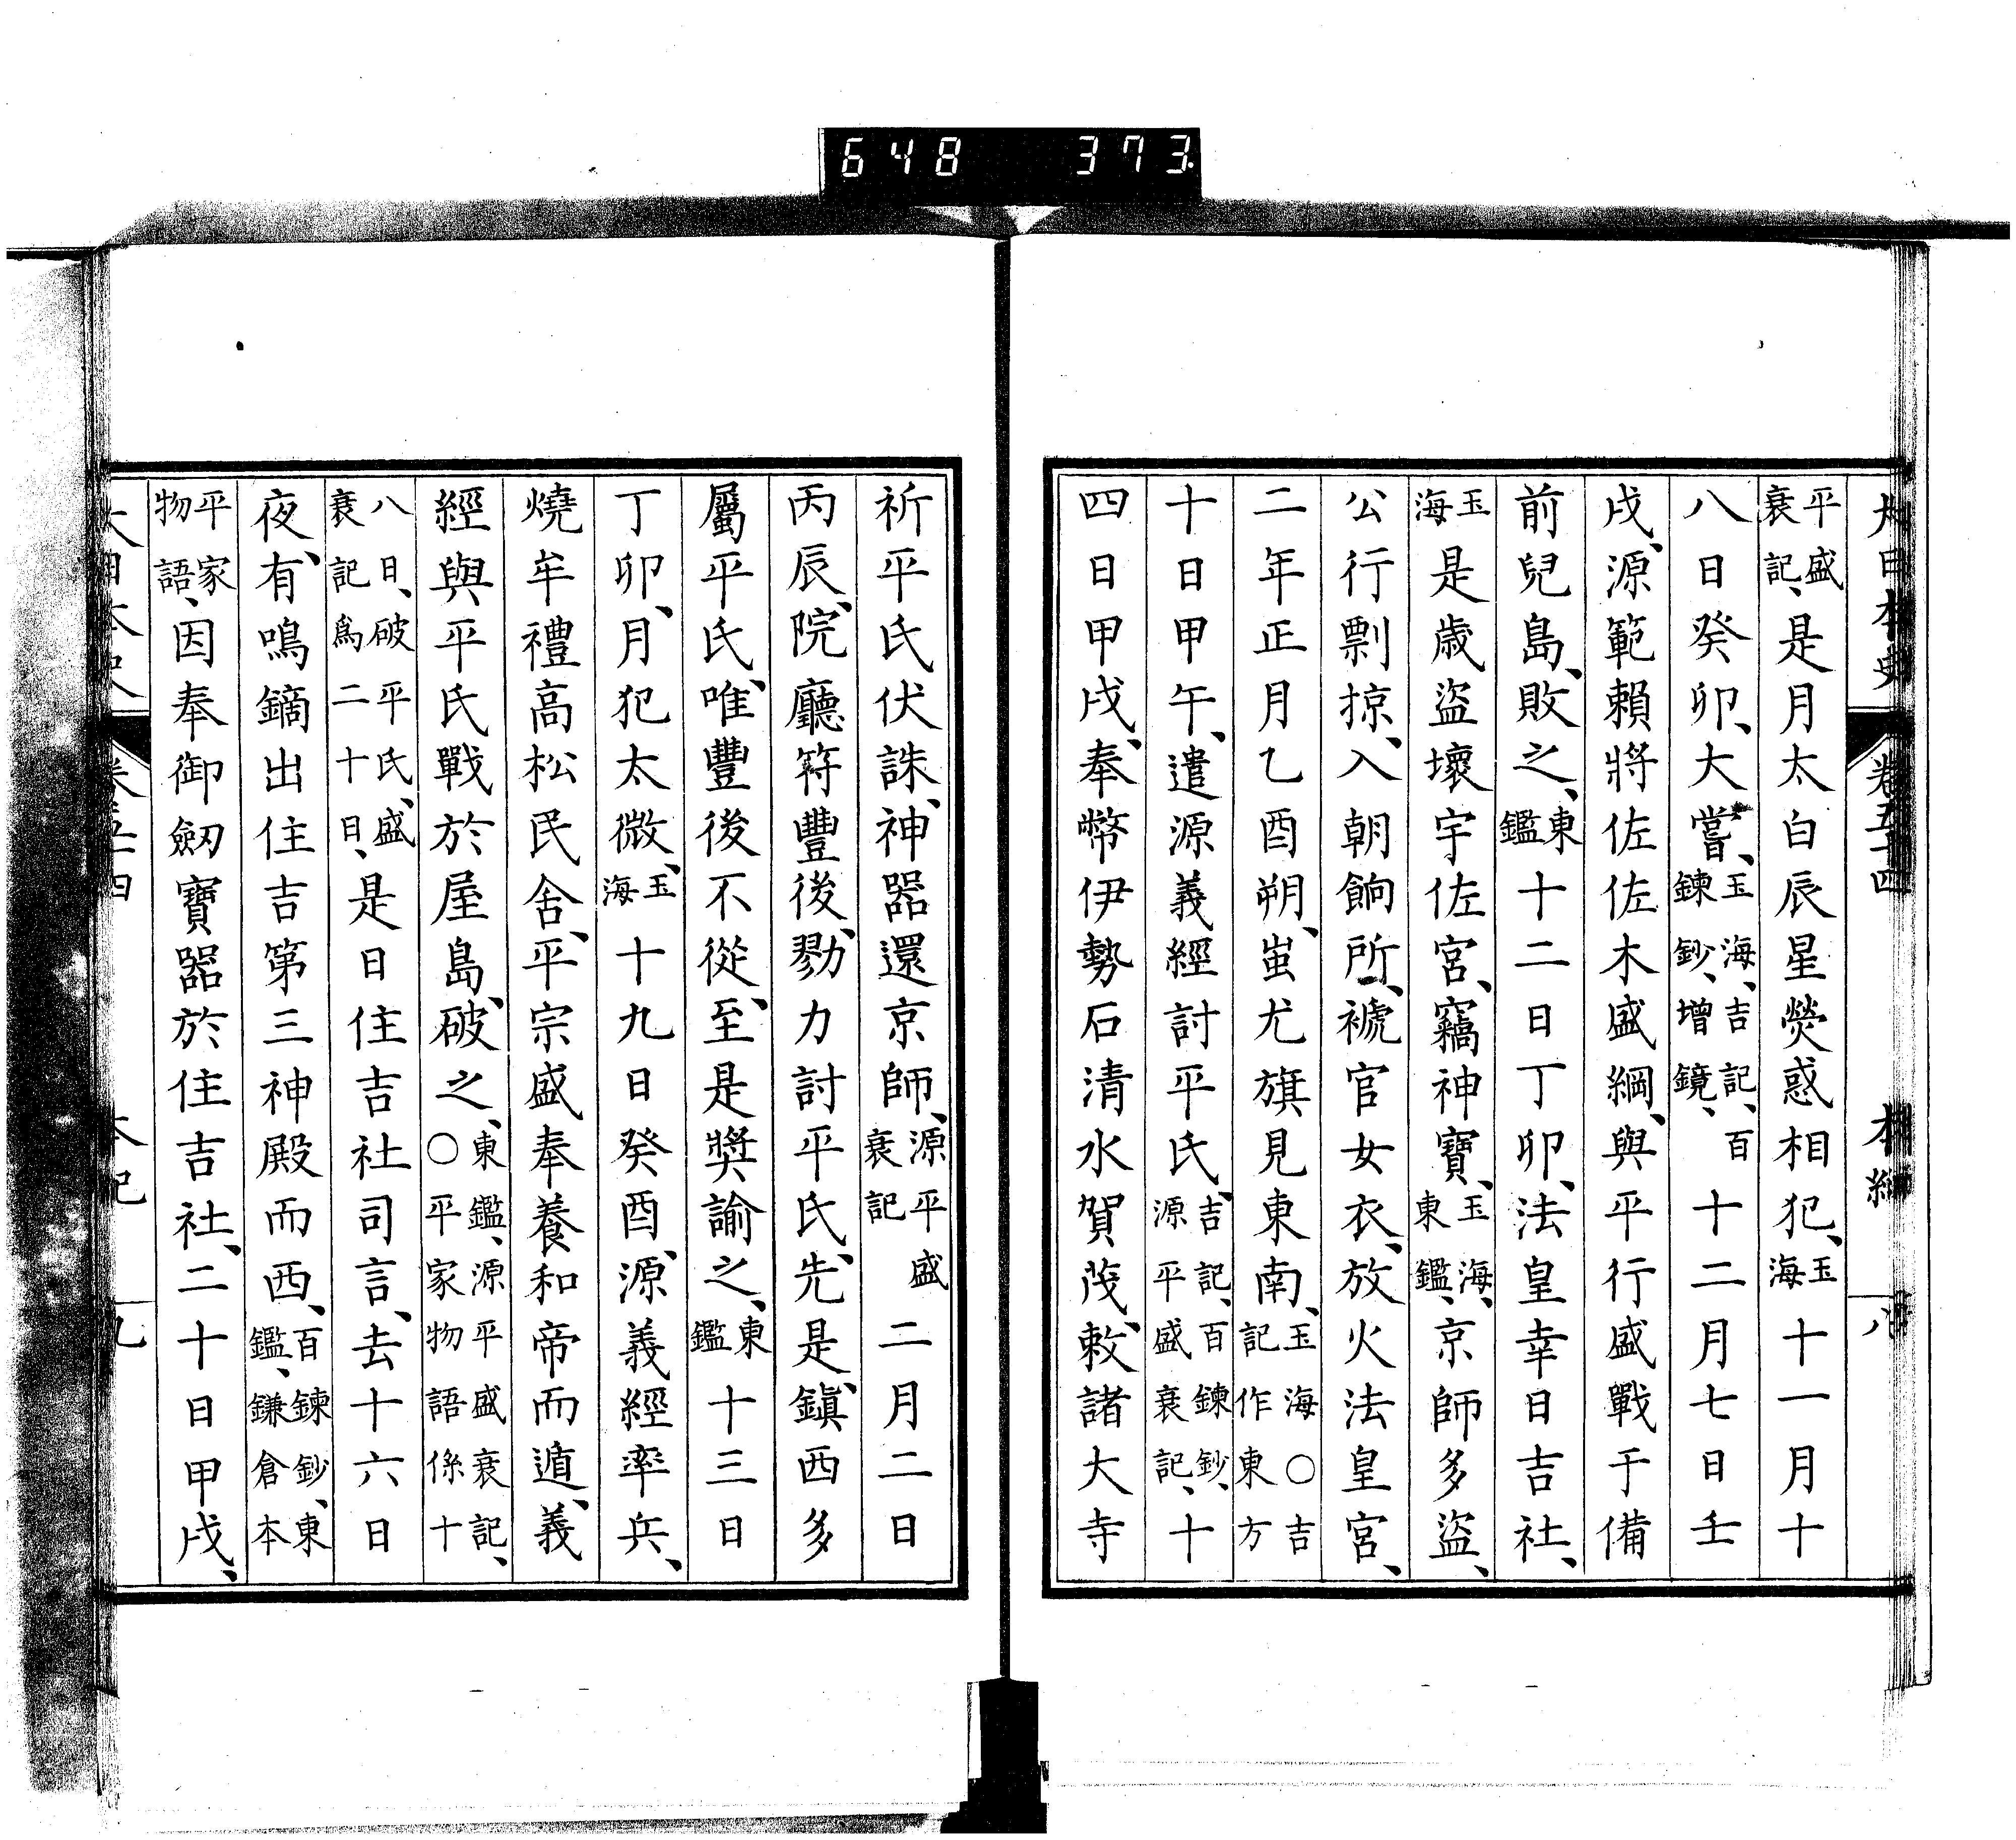 648 373.
大日本史 卷五十四 本紀 八
平盛衰記、是月太白辰星熒惑相犯、玉海十一月十
八日癸卯、大嘗、玉海、吉記、百鍊鈔、增鏡、十二月七日壬
戌、源範賴將佐佐木盛綱、與平行盛戰于備
前兒島、敗之、東鑑十二日丁卯、法皇幸日吉社、
玉海是歳盜壞宇佐宮、竊神寶、玉海、東鑑、京師多盜、
公行剽掠、入朝餉所、褫官女衣、放火法皇宮、
二年正月乙酉朔、蚩尤旗見東南、玉海○吉記作東方
十日甲午、遣源義經討平氏、吉記、百鍊鈔、源平盛衰記、十
四日甲戌、奉幣伊勢石清水賀茂、敕諸大寺
祈平氏伏誅、神器還京師、源平盛衰記二月二日
丙辰、院廳符豐後、勠力討平氏、先是、鎭西多
屬平氏、唯豐後不從、至是奬諭之、東鑑十三日
丁卯、月犯太微、玉海十九日癸酉、源義經率兵、
燒牟禮高松民舍、平宗盛奉養和帝而遁、義
經與平氏戰於屋島、破之、東鑑、源平盛衰記、○平家物語係十
八日、破平氏、盛衰記爲二十日、是日住吉社司言、去十六日
夜、有鳴鏑出住吉第三神殿而西、百鍊鈔、東鑑、鎌倉本
平家物語、因奉御劔寶器於住吉社、二十日甲戌、
大日本史 卷五十四 本紀 九